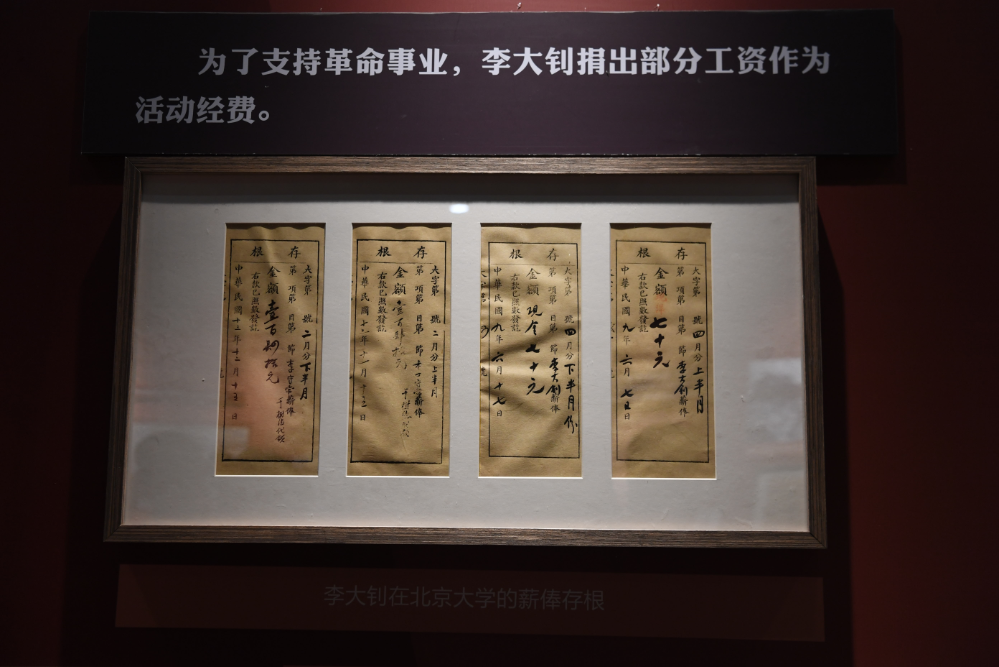 为了支持革命事业，李大钊捐出部分工资作为
活动经费。
存根
大字第 號四月分上半月
第 項第 目第 節李大釗薪俸
金額 七十元
右款已照數發訖
中華民國九年六月七日
存根
大字第 號四月分下半月份
第 項第 目第 節李大釗薪俸
金額現金七十元
右款已照數發訖
中華民國九年六月十七日
存根
大字第 號二月分上半月
第 項第 目第 節 薪俸
金額壹百
右款已照數發訖
中華民國十 年十一月十三日
存根
大字第 號二月分下半月
第 項第 目第 節 薪俸
金額壹百 元
右款已照數發訖
中華民國十二年十二月十五日
李大钊在北京大学的薪俸存根